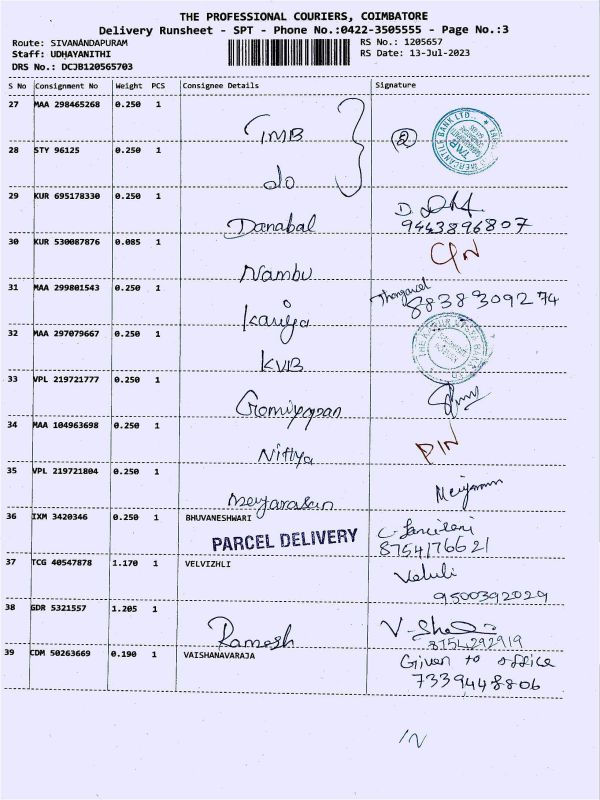 THE PROFESSIONAL COURIERS, COIMBATORE
Delivery Runsheet - SPT - Phone No.:0422-3505555 - Page No.:3
Route: SIVANANDAPURAM RS No.: 1205657
Staff: UDHAYANITHI RS Date: 13-Jul-2023
DRS No.: DCJB120565703
S No Consignment No Weight PCS Consignee Details Signature
27 MAA 298465268 0.250 1 TMB
28 STY 96125 0.250 1 do
29 KUR 695178330 0.250 1 Danabal D.
9443896807
30 KUR 530087876 0.085 1 Nambu
31 MAA 299801543 0.250 1 Kariya Thangavel
8838309274
32 MAA 297079667 0.250 1 KVB
33 VPL 219721777 0.250 1
34 MAA 104963698 0.250 1 Nithya PIN
35 VPL 219721804 0.250 1 Meyarasan
36 IXM 3420346 0.250 1 BHUVANESHWARI
PARCEL DELIVERY 8754176621
37 TCG 40547878 1.170 1 VELVIZHLI
9500392029
38 GDR 5321557 1.205 1 Ramesh
8754292919
39 CDM 50263669 0.190 1 VAISHANAVARAJA Given to office
7339448806